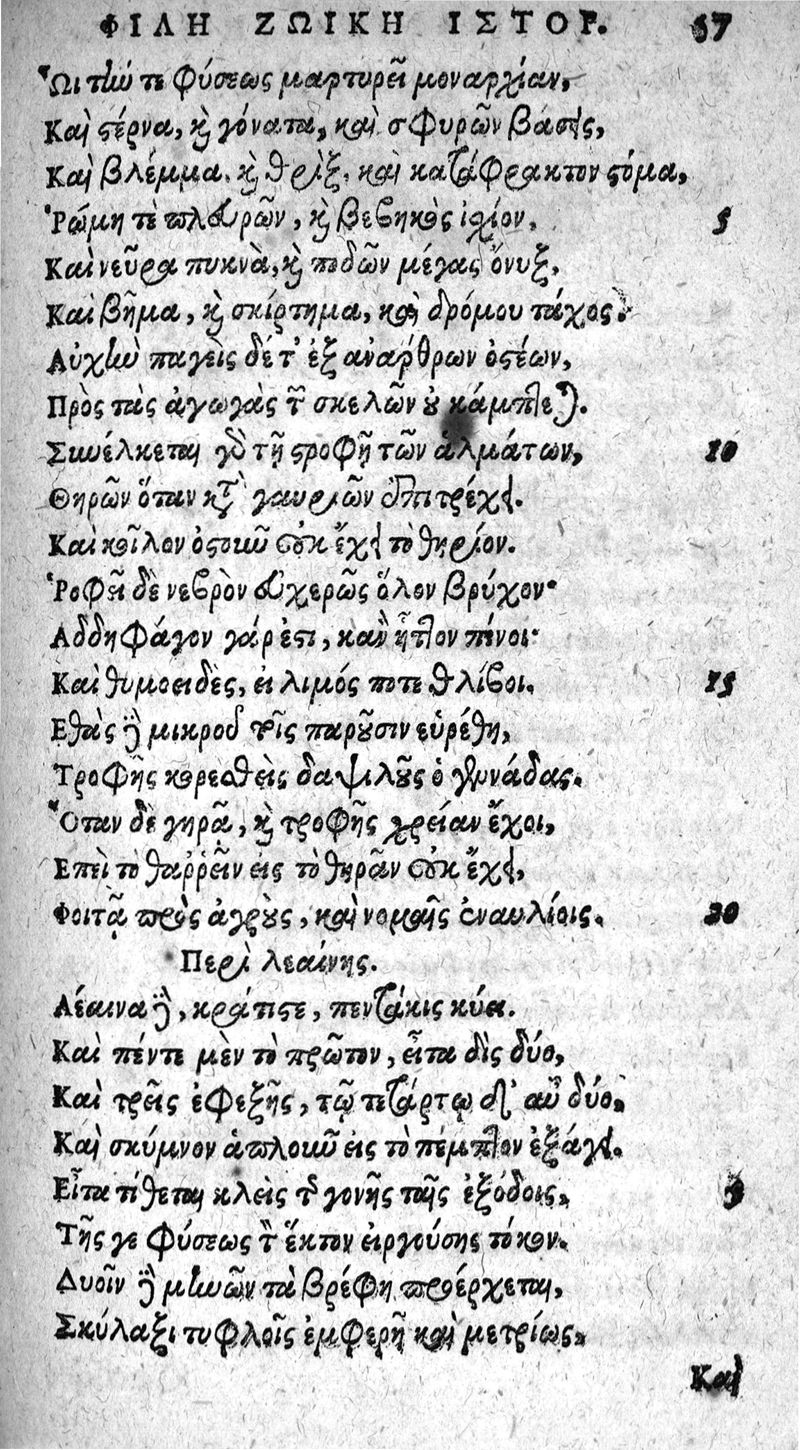 ΦΙΛΗ ΖΩΙΚΗ ΙΣΤΟΡ. 67
Ὧι τὴν τε φύσεως μαρτυρεῖ μοναρχίαν,
Καὶ στέρνα, καὶ γόνατα, καὶ σφυρῶν βάσις,
Καὶ βλέμμα, καὶ θρὶξ, καὶ κατάφρακτον στόμα,
Ῥώμη τὲ πλευρῶν, καὶ βεβηκὸς ἰσχίον, 5
Καὶ νεῦρα πυκνὰ, καὶ ποδῶν μέγας ὄνυξ,
Καὶ βῆμα, καὶ σκίρτημα, καὶ δρόμου τάχος.
Αὐχὴν παγεὶς δέ τ' ἐξ ἀνάρθρων ὀστέων,
Πρὸς τὰς ἀγωγὰς τῶν σκελῶν οὐ κάμπτεται.
Συνέλκεται γὰρ τῇ στροφῇ τῶν ἁλμάτων, 10
Θηρῶν ὅταν κατὰ γαυριῶν ἐπιτρέχει.
Καὶ κοῖλον ὀστοῦν οὐκ ἔχει τὸ θηρίον.
Ῥοφεῖ δὲ νεβρὸν εὐχερῶς ὅλον βρύχον·
Αδδηφάγον γάρ ἐστι, κἂν ἧττον πίνοι·
Καὶ θυμοειδὲς, εἰ λιμός ποτε θλίβοι. 15
Εθὰς δὲ μικροῦ τοῖς παροῦσιν εὑρέθη,
Τροφῆς κορεσθεὶς δαψιλοῦς ὁ γεννάδας.
Ὅταν δὲ γηρᾷ, καὶ τροφῆς χρείαν ἔχοι,
Επεὶ τὸ θαῤῥεῖν εἰς τὸ θηρᾶν οὐκ ἔχει,
Φοιτᾷ πρὸς ἀγροὺς, καὶ νομαῖς ἐναυλίοις. 20
Περὶ λεαίνης.
Λέαινα δὲ, κράτιστε, πεντάκις κύει.
Καὶ πέντε μὲν τὸ πρῶτον, εἶτα δὶς δύο,
Καὶ τρεῖς ἐφεξῆς, τῷ τετάρτῳ δ' αὖ δύο,
Καὶ σκύμνον ἁπλοῦν εἰς τὸ πέμπτον ἐξάγει.
Εἶτα τίθεται κλεὶς τῆς γονῆς ταῖς ἐξόδοις, 5
Τῆς γε φύσεως τὸν ἕκτον εἰργούσης τόκον.
Δυοῖν δὲ μηνῶν τὰ βρέφη προέρχεται,
Σκύλαξι τυφλοῖς ἐμφερῆ καὶ μετρίως,
Καὶ